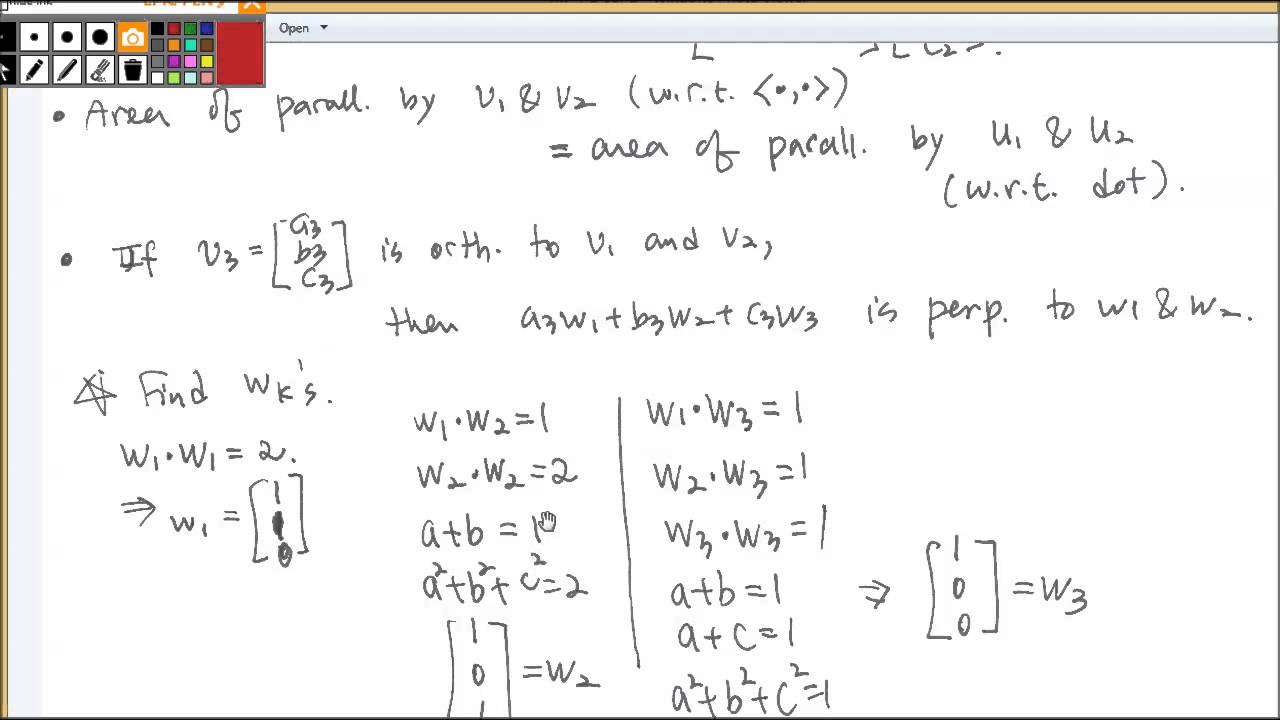 Open
• Area of parall. by v₁ & v₂ (w.r.t. <•,•>)
= area of parall. by u₁ & u₂
(w.r.t. dot).
• If v₃ = [a₃ b₃ c₃] is orth. to v₁ and v₂,
then a₃w₁+b₃w₂+c₃w₃ is perp. to w₁ & w₂.
☆ Find wₖ's.
w₁•w₁ = 2.
⇒ w₁ = [1 1 0]
w₁•w₂=1
w₂•w₂=2
a+b=1
a²+b²+c²=2
[1 0 1] = w₂
w₁•w₃=1
w₂•w₃=1
w₃•w₃=1
a+b=1
a+c=1
a²+b²+c²=1
⇒ [1 0 0] = w₃